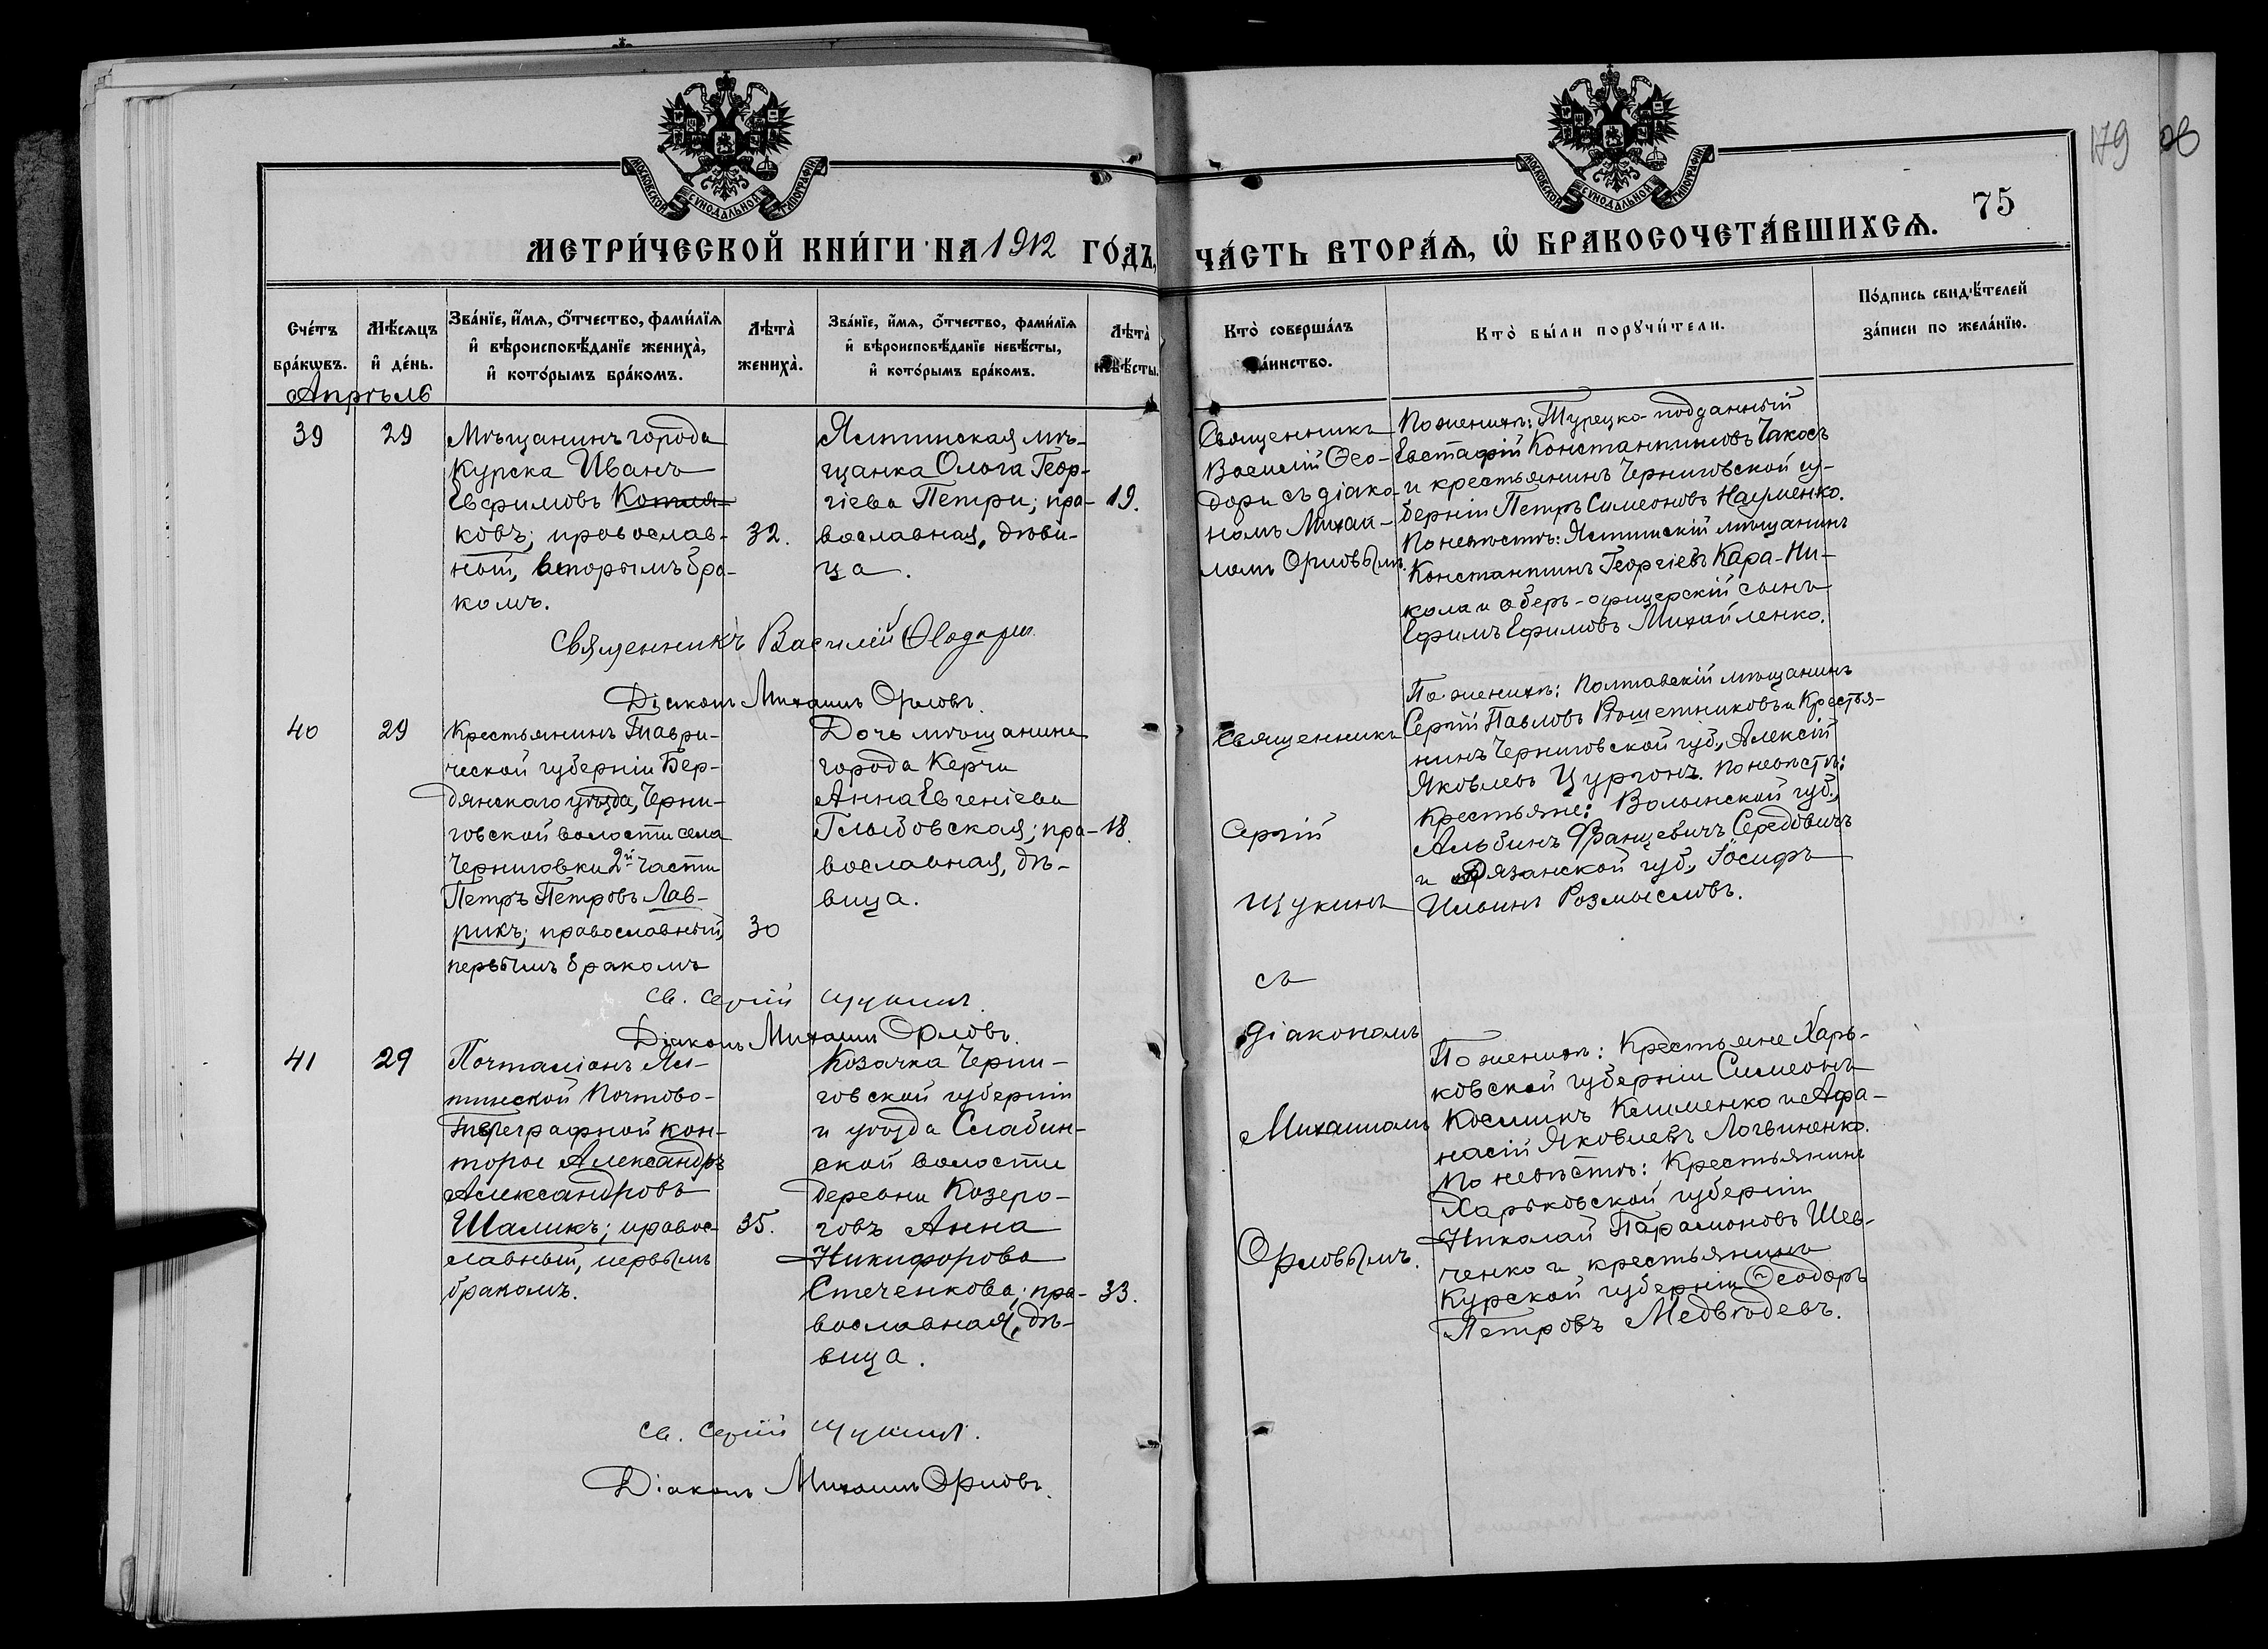 МОСКОВСКОЙ СѴНОДАЛЬНОЙ ТИПОГРАФІИ
МОСКОВСКОЙ СѴНОДАЛЬНОЙ ТИПОГРАФІИ
179
75
МЕТРИ́ЧЕСКОЙ КНИ́ГИ НА 1912 ГО́ДЪ,
ЧА́СТЬ ВТОРА́Ѧ, Ѽ БРАКОСОЧЕТА́ВШИХСѦ.
Сче́тъ
бра́кѡвъ.
Мѣ́сяцъ
и҆ де́нь.
Зва́нїе, и҆́мѧ, ѻ҆́тчество, фами́лїѧ
и҆ вѣроисповѣ́данїе жениха̀,
и҆ кото́рымъ бра́комъ.
Лѣта̀
жениха̀.
Зва́нїе, и҆́мѧ, ѻ҆́тчество, фами́лїѧ
и҆ вѣроисповѣ́данїе невѣ́сты,
и҆ кото́рымъ бра́комъ.
Лѣта̀
невѣ́сты.
Кто̀ соверша́лъ
та́инство.
Кто̀ бы́ли порꙋчи́тели.
По́дпись свидѣ́телей
за́писи по жела́нїю.
Апрѣль
39
29
Мѣщанинъ города
Курска Иванъ
Евфимовъ Котля-
ковъ; православ-
ный, вторымъ бра-
комъ.
32.
Ялтинская мѣ-
щанка Ольга Геор-
гіева Петри; пра-
вославная, дѣви-
ца.
19.
Священникъ
Василій Ѳео-
дори съ діако-
номъ Михаи-
ломъ Орловымъ.
По женихѣ: Турецко-подданный
Евстафій Константиновъ Чакосъ
и крестьянинъ Черниговской гу-
берніи Петръ Симеоновъ Науменко.
По невѣстѣ: Ялтинскій мѣщанинъ
Константинъ Георгіевъ Кара-Ни-
кола и оберъ-офицерскій сынъ
Ефимъ Ефимовъ Михайленко.
Священникъ Василій Ѳеодори
Діаконъ Михаилъ Орловъ.
40
29
Крестьянинъ Таври-
ческой губерніи Бер-
дянскаго уѣзда, Черни-
говской волости села
Черниговки 2й части
Петръ Петровъ Лав-
рикъ; православный,
первымъ бракомъ
30
Дочь мѣщанина
города Керчи
Анна Евгеніева
Глыбовская; пра-
вославная, дѣ-
вица.
18.
Священникъ
Сергій
Щукинъ
съ
діакономъ
Михаиломъ
Орловымъ.
По женихѣ: Полтавскій мѣщанинъ
Сергій Павловъ Рѣшетниковъ и Крестья-
нинъ Черниговской губ., Алексій
Яковлевъ Цургонъ. По невѣстѣ:
Крестьяне: Волынской губ.,
Альбинъ Францевичъ Середовичъ
и Рязанской губ., Іосифъ
Ильинъ Розмысловъ.
Св. Сергій Щукинъ.
Діаконъ Михаилъ Орловъ.
41
29
Почталіонъ Ял-
тинской Почтово-
Телеграфной кон-
торы Александръ
Александровъ
Шаликъ; правос-
лавный, первымъ
бракомъ.
35.
Козачка Черни-
говской губерніи
и уѣзда Слабин-
ской волости
деревни Козеро-
говъ Анна
Никифорова
Стеченкова; пра-
вославная, дѣ-
вица.
33.
По женихѣ: Крестьяне Харь-
ковской губерніи Симеонъ
Косминъ Клименко и Афа-
насій Яковлевъ Логвиненко.
По невѣстѣ: Крестьянинъ
Харьковской губерніи
Николай Парамоновъ Шев-
ченко и крестьянинъ
Курской губерніи Ѳеодоръ
Петровъ Медвѣдевъ.
Св. Сергій Щукинъ.
Діаконъ Михаилъ Орловъ.